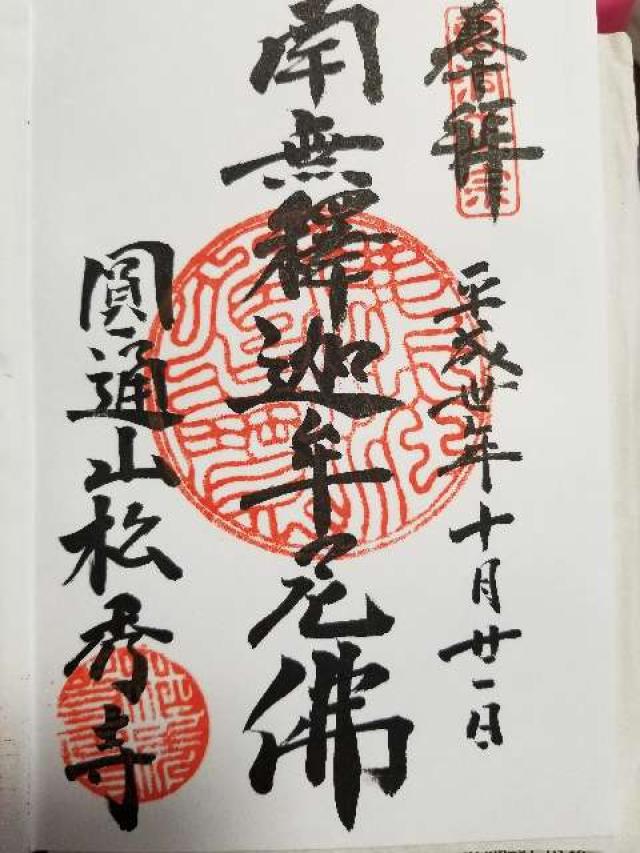 奉拜
平成丗年十月廿一日
南無釋迦牟尼佛
圓通山松秀寺